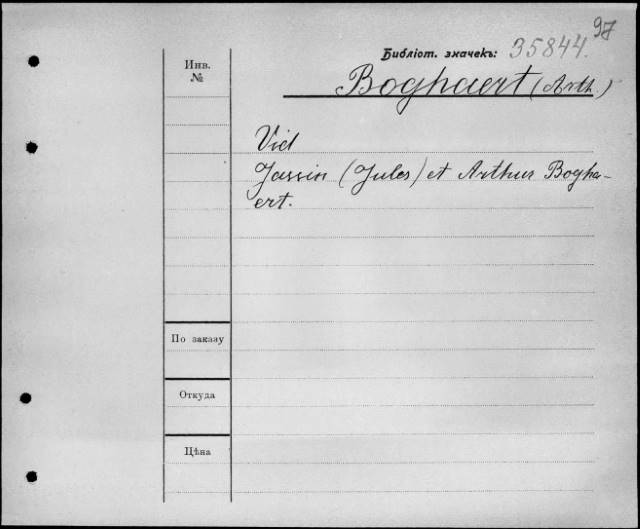 97
Библіот. значекъ: 35844.
Инв.
№
Boghaert (Arth)
Vid
Jassin (Jules) et Arthur Bogha-
ert.
По заказу
Откуда
Цѣна